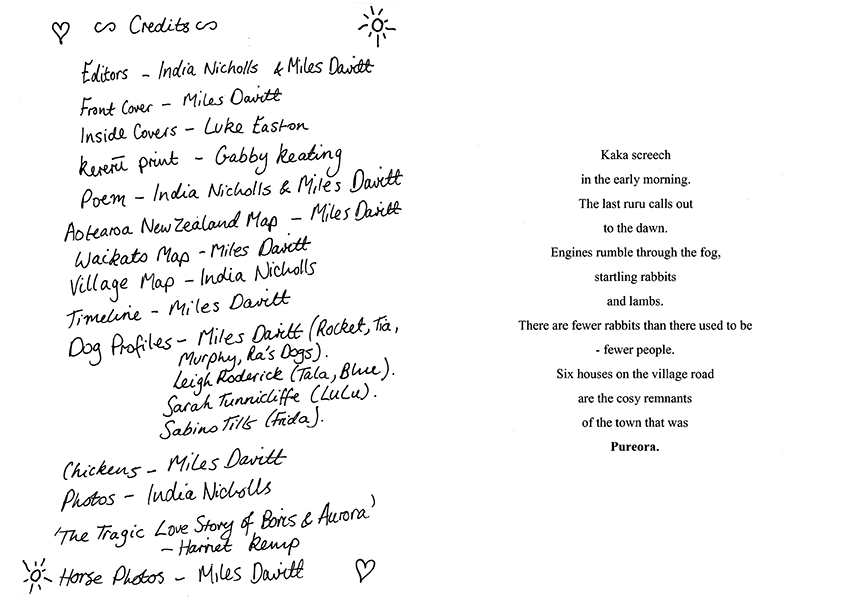 Credits
Editors - India Nicholls & Miles Davitt
Front Cover - Miles Davitt
Inside Covers - Luke Easton
Kererū print - Gabby Keating
Poem - India Nicholls & Miles Davitt
Aotearoa New Zealand Map - Miles Davitt
Waikato Map - Miles Davitt
Village Map - India Nicholls
Timeline - Miles Davitt
Dog Profiles - Miles Davitt (Rocket, Tia,
Murphy, Ra's Dogs).
Leigh Roderick (Tala, Blue).
Sarah Tunnicliffe (LuLu).
Sabino (Frida).
Chickens - Miles Davitt
Photos - India Nicholls
'The Tragic Love Story of Boris & Aurora'
- Harriet Kemp
Horse Photos - Miles Davitt
Kaka screech
in the early morning.
The last ruru calls out
to the dawn.
Engines rumble through the fog,
startling rabbits
and lambs.
There are fewer rabbits than there used to be
- fewer people.
Six houses on the village road
are the cosy remnants
of the town that was
Pureora.